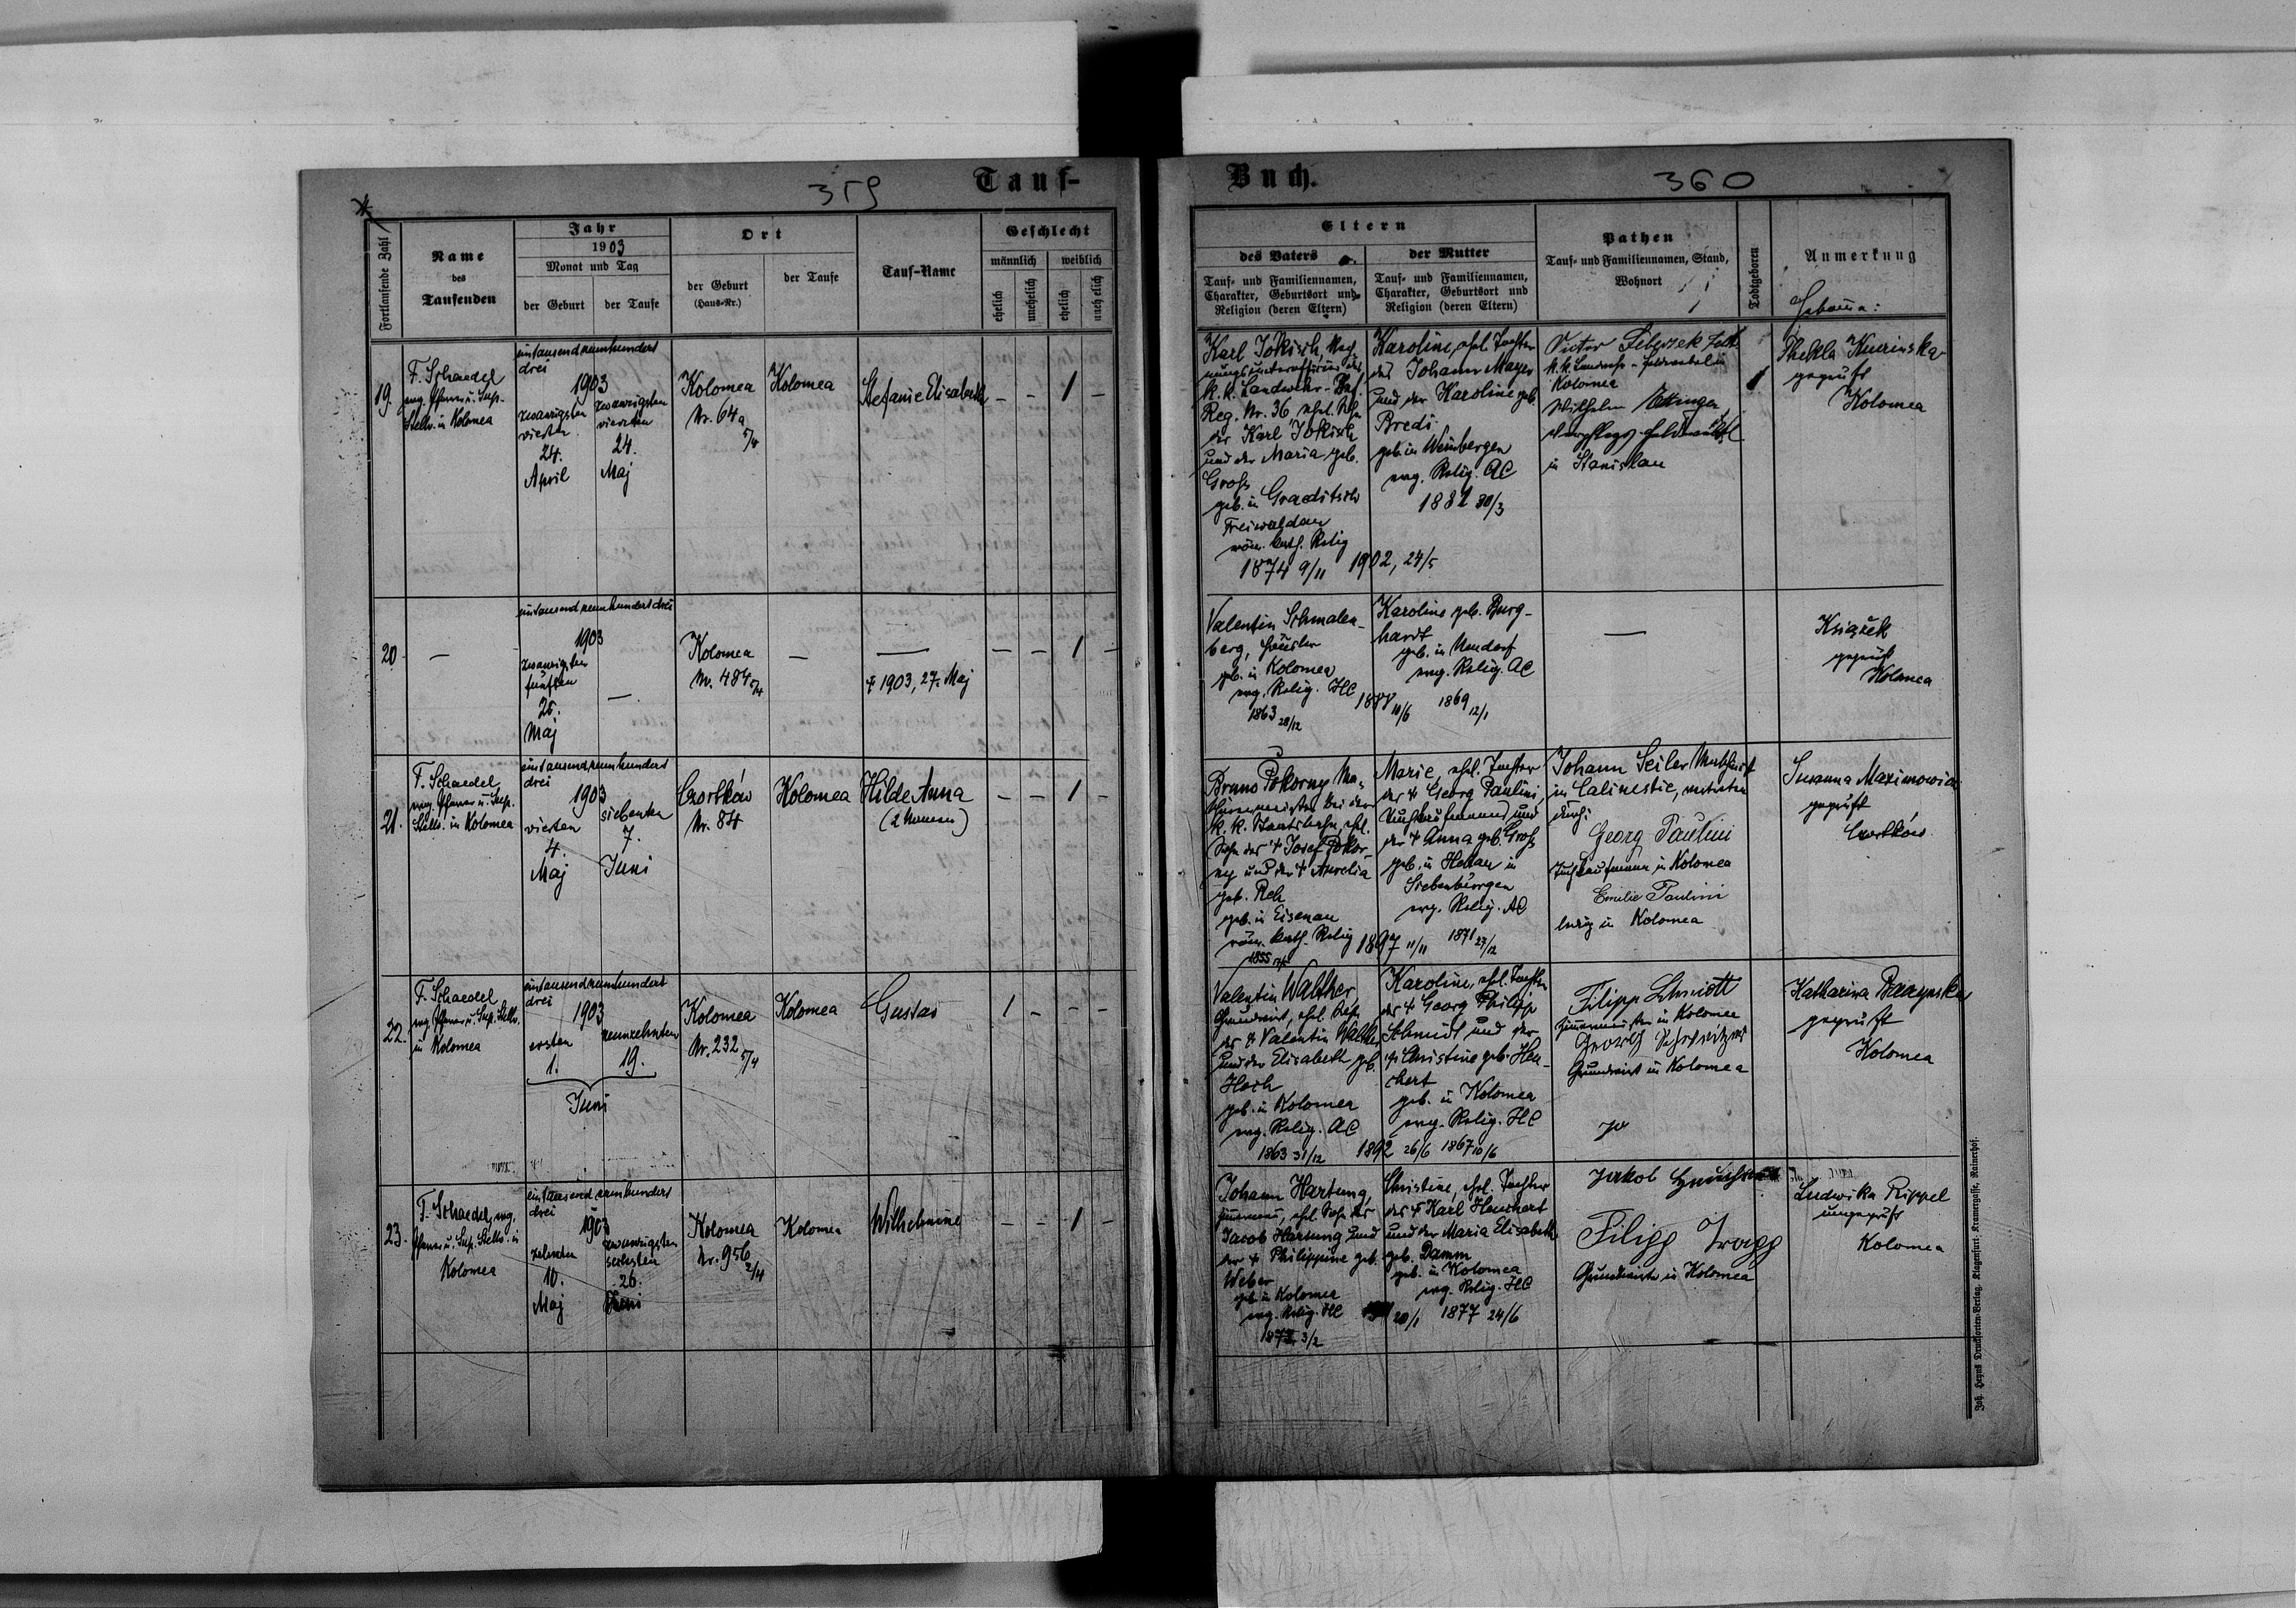 359
Tauf-
Fortlaufende Zahl
Name
des
Taufenden
Jahr
1903
Monat und Tag
der Geburt
der Taufe
Ort
der Geburt
(Haus-Nr.)
der Taufe
Tauf-Name
Geschlecht
männlich
weiblich
ehelich
unehelich
ehelich
unehelich
19.
F. Schaedel
evg. Pfarrer u. Sup.
Stellv. in Kolomea
eintausendneunhundert
drei
1903
zwanzigsten
vierten
24.
April
zwanzigsten
vierten
24.
Maj
Kolomea
Nr. 64a
5/4
Kolomea
Stefanie Elisabeth
– – 1 –
20
—
eintausendneunhundertdrei
1903
zwanzigsten
fünften
25.
Maj
—
Kolomea
Nr. 484 5/4
—
—
† 1903, 27. Maj
– – 1 –
21.
F. Schaedel,
evg. Pfarrer u. Sup.
Stellv. in Kolomea
eintausendneunhundert
drei
1903
vierten
4.
Maj
siebenten
7.
Juni
Czortków
Nr. 84
Kolomea
Hilde Anna
(2 Namen)
– – 1 –
22.
F. Schaedel
evg. Pfarrer u. Sup. Stellv.
in Kolomea
eintausendneunhundert
drei
1903
ersten
1.
neunzehnten
19.
Juni
Kolomea
Nr. 232
5/4
Kolomea
Gustav
1 – – –
23.
F. Schaedel, evg.
Pfarrer u. Sup. Stellv. in
Kolomea
eintausendneunhundert
drei
1903
zehnten
10.
Maj
zwanzigsten
sechsten
26.
Juni
Kolomea
Nr. 956
2/4
Kolomea
Wilhelmine
– – 1 –
Buch.
360
Eltern
des Vaters
Tauf- und Familiennamen,
Charakter, Geburtsort und
Religion (deren Eltern)
der Mutter
Tauf- und Familiennamen,
Charakter, Geburtsort und
Religion (deren Eltern)
Pathen
Tauf- und Familiennamen, Stand,
Wohnort
Todtgeboren
Anmerkung
Karl Jokisch, Rech-
nungsunteroffizier des
k. k. Landwehr-Inf.
Reg. Nr. 36 ehel. Sohn
des Karl Jokisch
und der Maria geb.
Gross
geb. in Graeditsch
Freiwaldau
röm. kath. Relig
1874 9/11
1902, 24/5
Karoline, ehel. Tochter
des Johann Mayer
und der Karoline geb.
Bredi
geb. in Weinbergen
evg. Relig. AC
1882 30/3
Victor
k. k. Landwehr-Feldwebel in
Kolomea
Wilhelm
in Stanislau
Thekla
geprüft
Kolomea
Valentin Schmalen-
berg, Häusler
geb. in Kolomea
evg. Relig. HC
1863 28/12
10/6
Karoline geb. Burg-
hardt
geb. in Neudorf
evg. Relig. AC
1869 12/1
—
Książek
geprüft
Kolomea
Bruno Pokorny Ma-
schinenmeister bei der
k. k. Staatsbahn, ehel.
Sohn des † Josef Pokor-
ny und der † Aurelia
geb. Reh
geb. in Eisenau
röm. kath. Relig
1855
1897 11/11
Marie, ehel. Tochter
des † Georg Paulini,
Tuchkaufmanns und
der † Anna geb. Gross
geb. in Heltau in
Siebenbürgen
evg. Relig. AC
1871 27/12
Johann Seiler
in Calinestie, vertreten
durch:
Georg Paulini
Tuchkaufmann in Kolomea
Emilie Paulini
ledig in Kolomea
Susanna Maximowicz
geprüft
Czortków
Valentin Walther,
Grundwirt, ehel. Sohn
des † Valentin Walther
und der Elisabeth geb.
Hoch
geb. in Kolomea
evg. Relig. AC
1863 31/12
1892 26/6
Karoline, ehel. Tochter
des † Georg Philipp
Schmidt und der
† Christine geb. Heu-
chert
geb. in Kolomea
evg. Relig. HC
1867 10/6
Filipp Schmidt
Zimmermeister in Kolomea
Georg
Grundwirt in Kolomea
Katharina
geprüft
Kolomea
Johann Hartung,
Zimmermann, ehel. Sohn des
Jacob Hartung und
der † Philippine geb.
Weber
geb. in Kolomea
evg. Relig. HC
3/2
20/1
Christine, ehel. Tochter
des † Karl Heuchert
und der Maria Elisabeth
geb. Damm
geb. in Kolomea
evg. Relig. HC
1877 24/6
Jakob
Filipp
Grundwirte in Kolomea
Ludwika Rippel
ungeprüft
Kolomea
Joh. Heyns Drucksorten-Verlag, Klagenfurt, Kramergasse, Rainerhof.